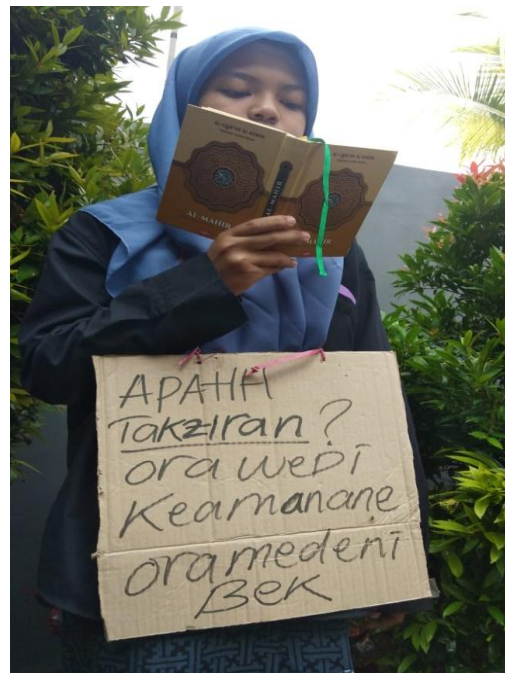 AL-MAHIR
AL-MAHIR
APAHH
Takziran?
ora weDi
Keamanane
oramedeni
BeK